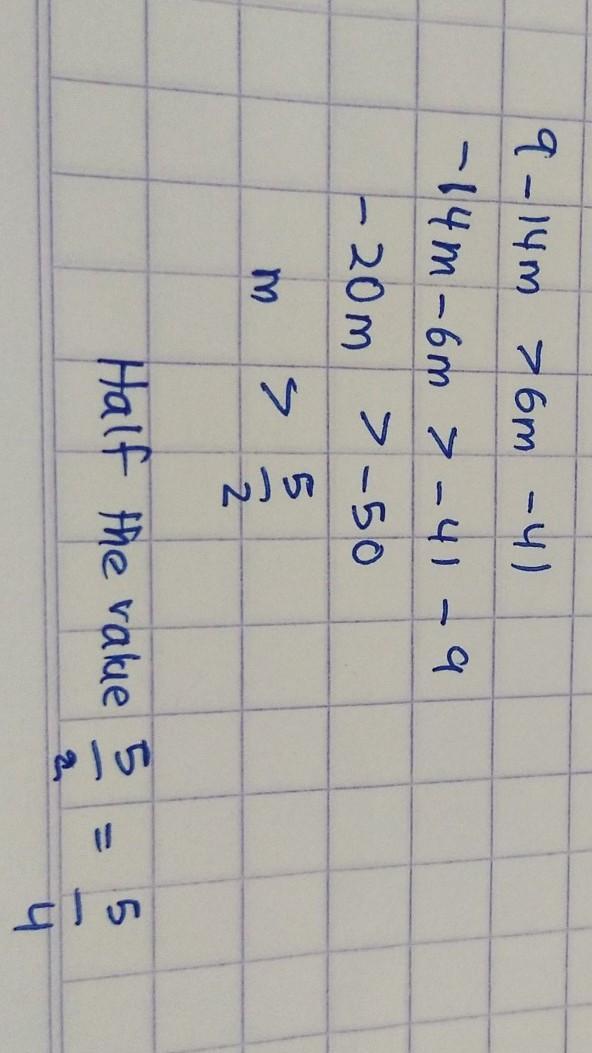 9 - 14m > 6m - 41
-14m - 6m > -41 - 9
-20m > -50
m > 5/2
Half the value 5/2 = 5/4